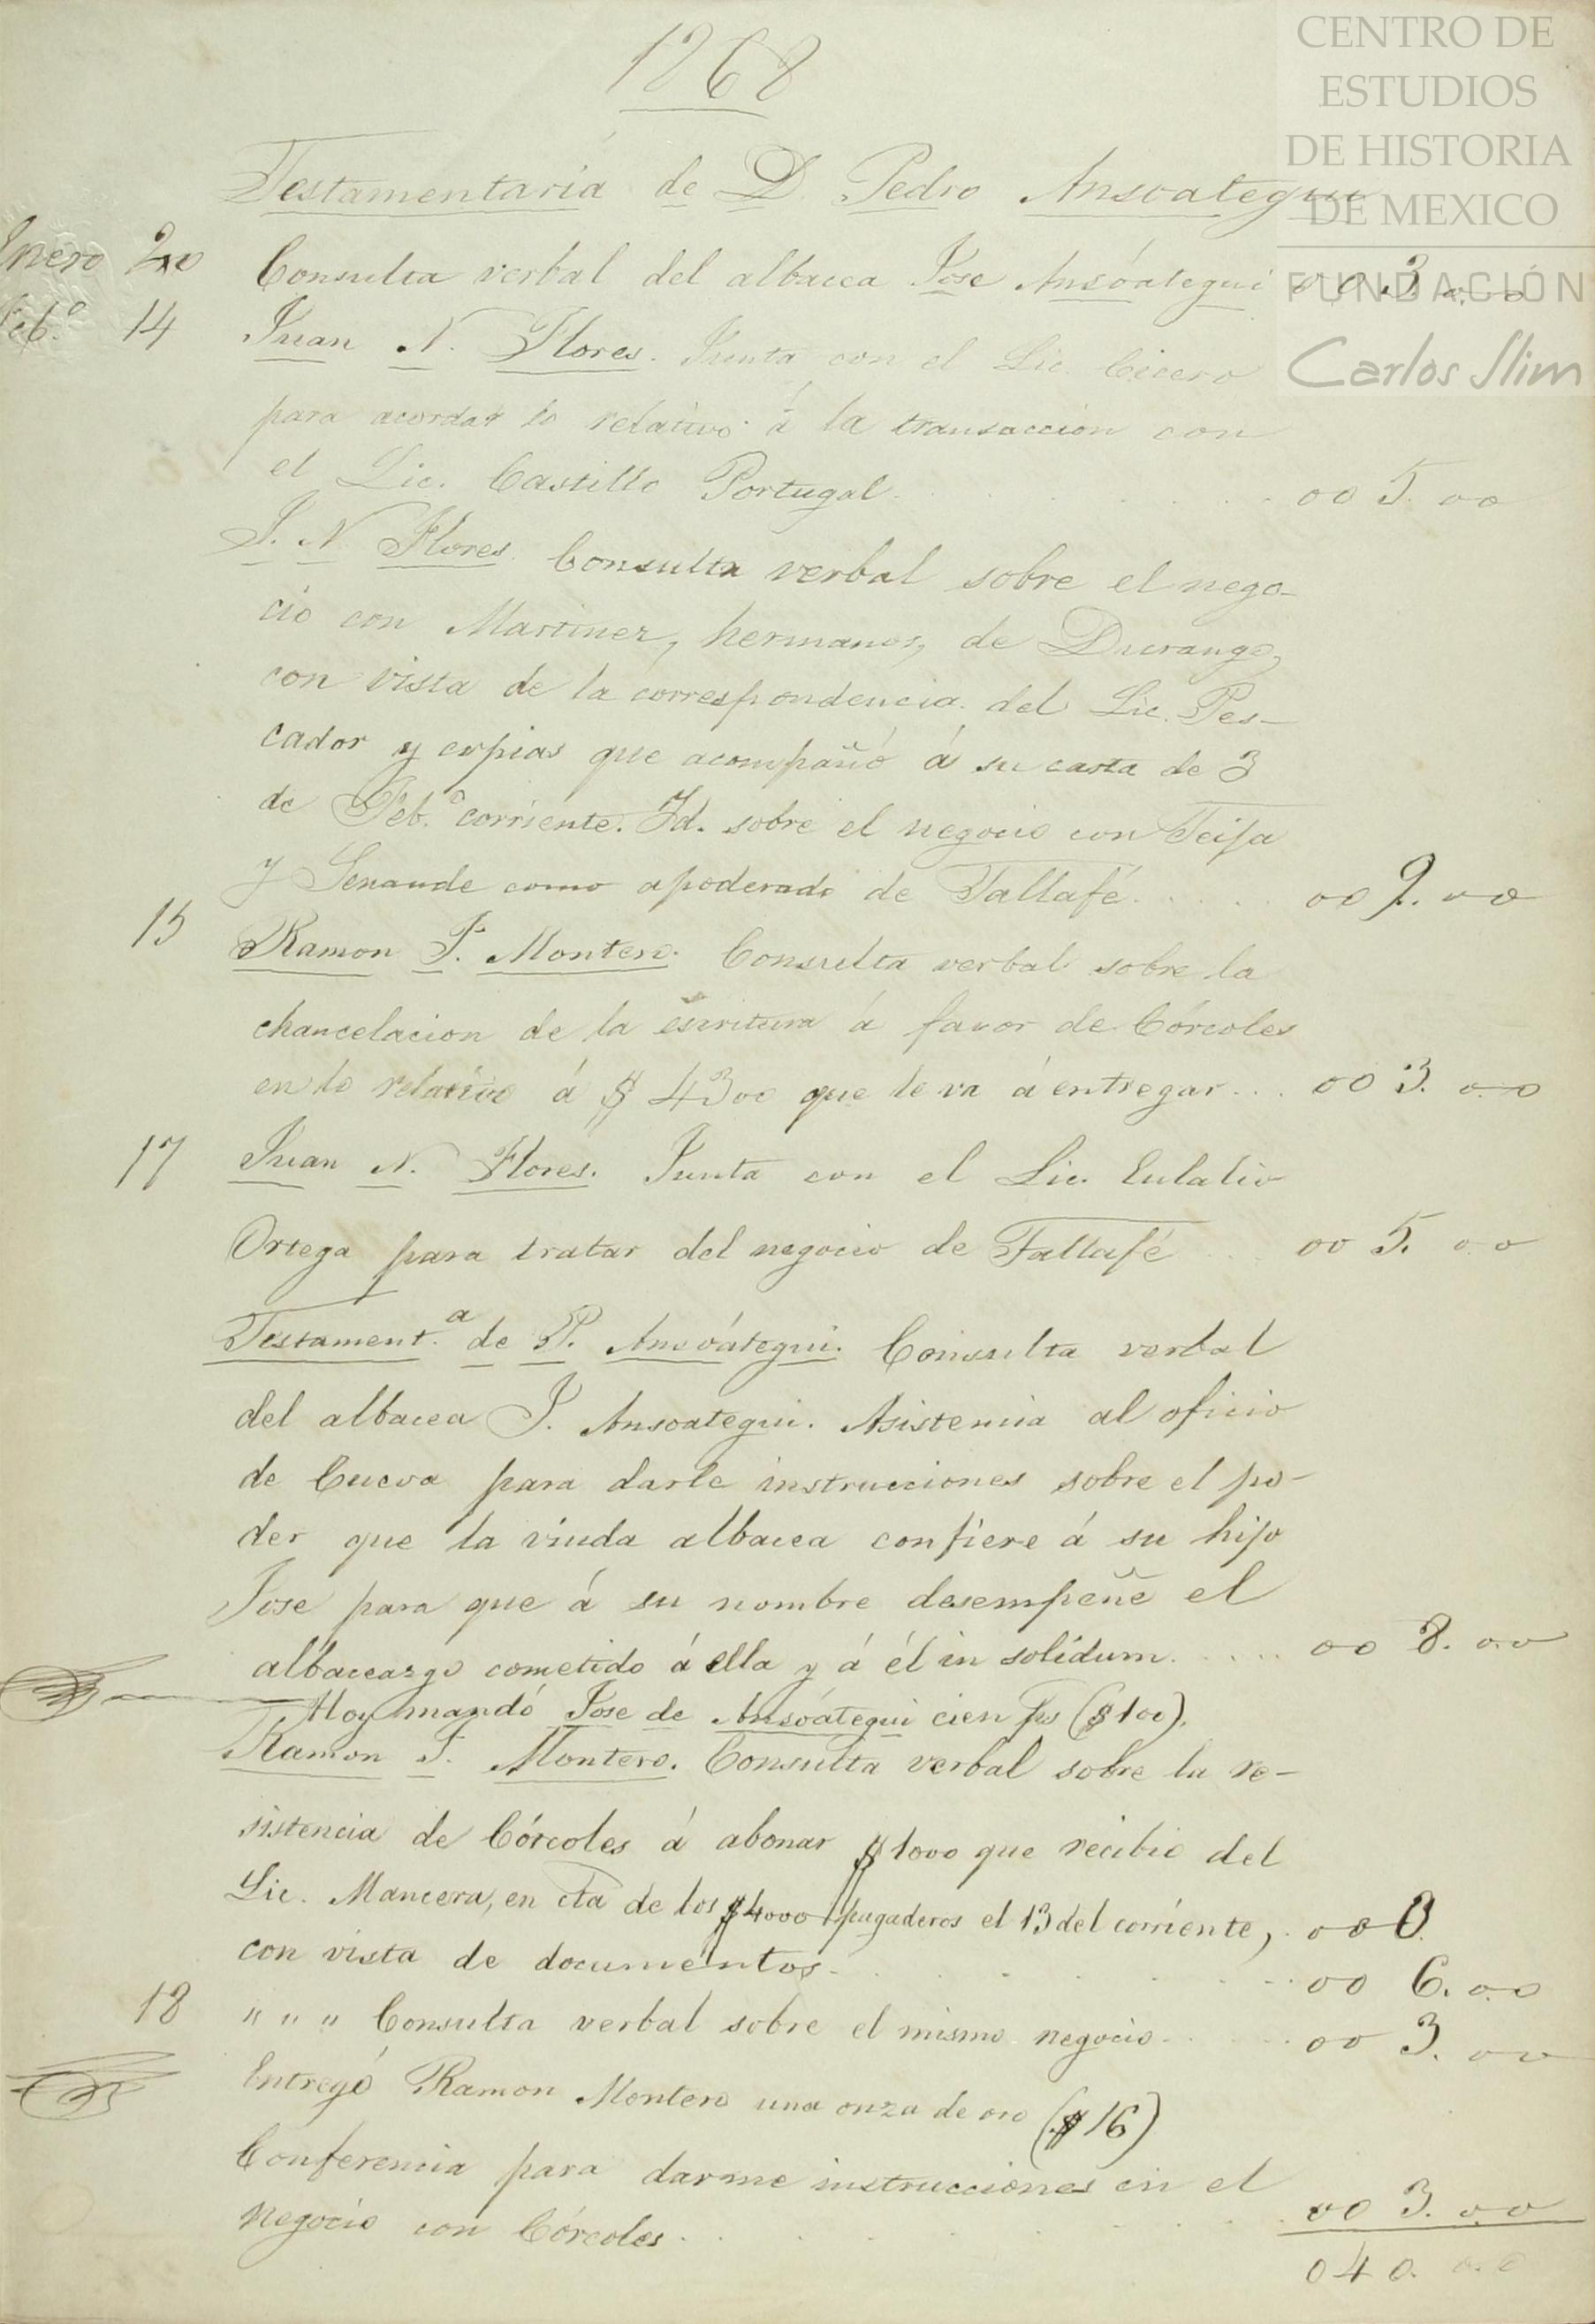 1868
CENTRO DE
ESTUDIOS
DE HISTORIA
DE MEXICO
FUNDACIÓN
Carlos Slim
Testamentaría de D. Pedro Ansoategui
Enero 20 Consulta verbal del albacea Jose Ansóategui 003.00
Feb.o 14 Juan N. Flores. Junta con el Lic. Cicero
para acordar lo relativo á la transaccion con
el Lic. Castillo Portugal. 005.00
J. N. Flores. Consulta verbal sobre el nego-
cio con Martinez, hermanos, de Durango,
con vista de la correspondencia del Lic. Pes-
cador y copias que acompañó á su carta de 3
de Feb.o corriente. Id. sobre el negocio con Teipa
y Senande como apoderado de Tallafé..... 009.00
15 Ramon F. Montero. Consulta verbal sobre la
chancelacion de la escritura á favor de Córcoles
en lo relativo á $4300 que le va á entregar... 003.00
17 Juan N. Flores. Junta con el Lic. Eulalio
Ortega para tratar del negocio de Tallafé 005.00
Testament.a de P. Ansoátegui. Consulta verbal
del albacea J. Ansoategui. Asistencia al oficio
de Cueva para darle instrucciones sobre el po-
der que la viuda albacea confiere á su hijo
Jose para que á su nombre desempeñe el
albaceazgo cometido á ella y á él in solídum..... 008.00
Hoy mandó Jose de Ansoátegui cien ps ($100).
Ramon F. Montero. Consulta verbal sobre la re-
sistencia de Córcoles á abonar $1000 que recibió del
Lic. Mancera, en cta de los $4000 pagaderos el 13 del corriente, 000
con vista de documentos. 006.00
18 " " " Consulta verbal sobre el mismo negocio 003.00
Entregó Ramon Montero una onza de oro ($16)
Conferencia para darme instrucciones en el
negocio con Córcoles. 003.00
040.00